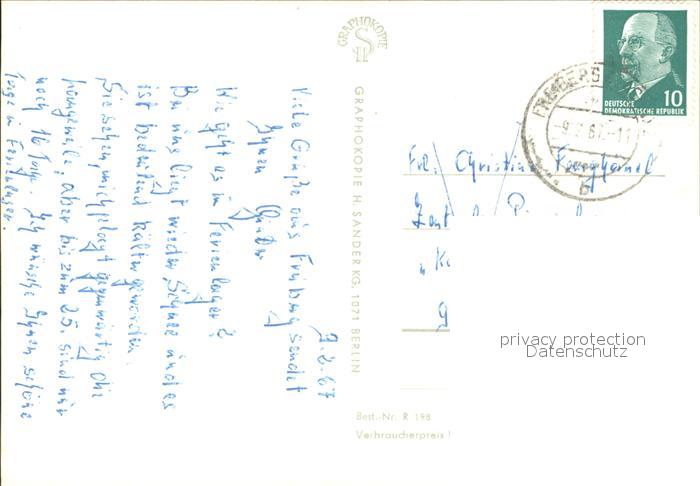 GRAPHOKOPIE
H S
GRAPHOKOPIE H. SANDER KG, 1071 BERLIN
7.2.67
Viele Grüße aus Freiberg sendet
Ihnen Günter
Wie geht es im Ferienlager?
Bei uns liegt wieder Schnee und es
ist bedeutend kälter geworden.
Sie sehen, mich plagt gegenwärtig die
Langeweile, aber bis zum 25. sind nur
noch 16 Tage. Ich wünsche Ihnen schöne
Tage im Ferienlager.
Best.-Nr. R 198
Verbraucherpreis
FREIBERG
10
DEUTSCHE
DEMOKRATISCHE REPUBLIK
b
Frl. Christine
privacy protection
Datenschutz